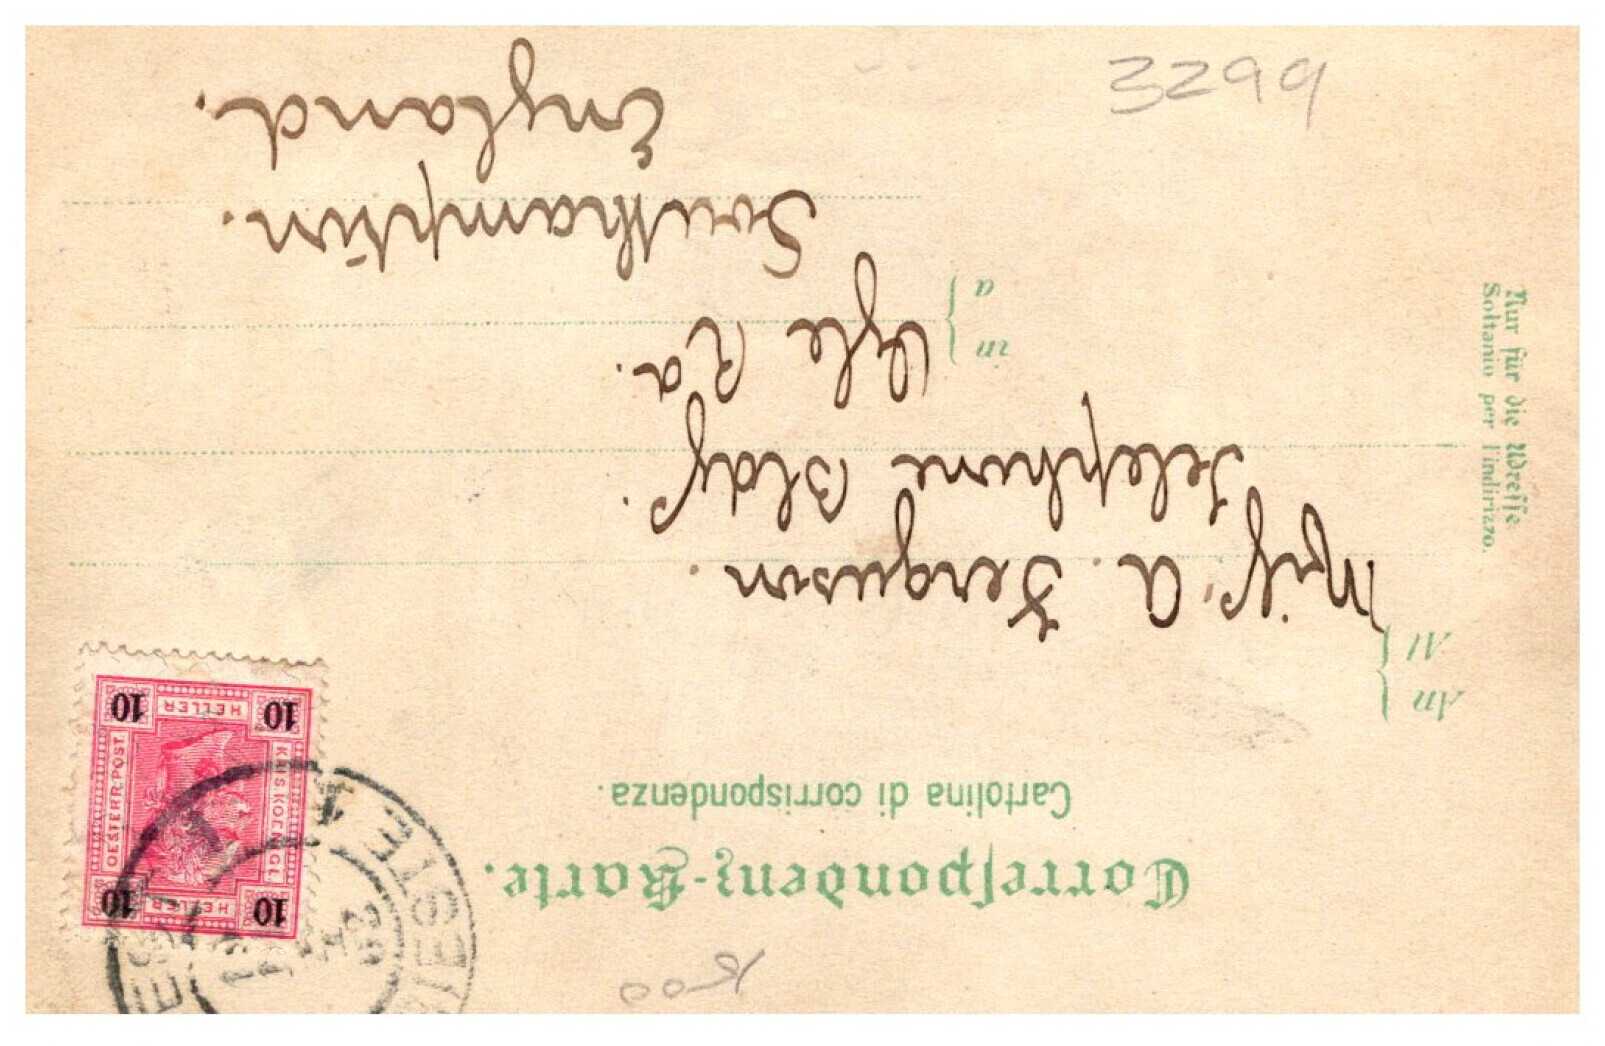 3299
1500
Correspondenz-Karte.
Cartolina di corrispondenza.
An
Al
Miss A. Ferguson.
Telephone Bldgs.
in
a
Ogle Rd.
Southampton.
England.
Nur für die Adresse
Soltanto per l'indirizzo.
10 HELLER 10
KAIS. KÖNIGL.
OESTERR. POST.
10 HELLER 10
TRIESTE
TRIEST